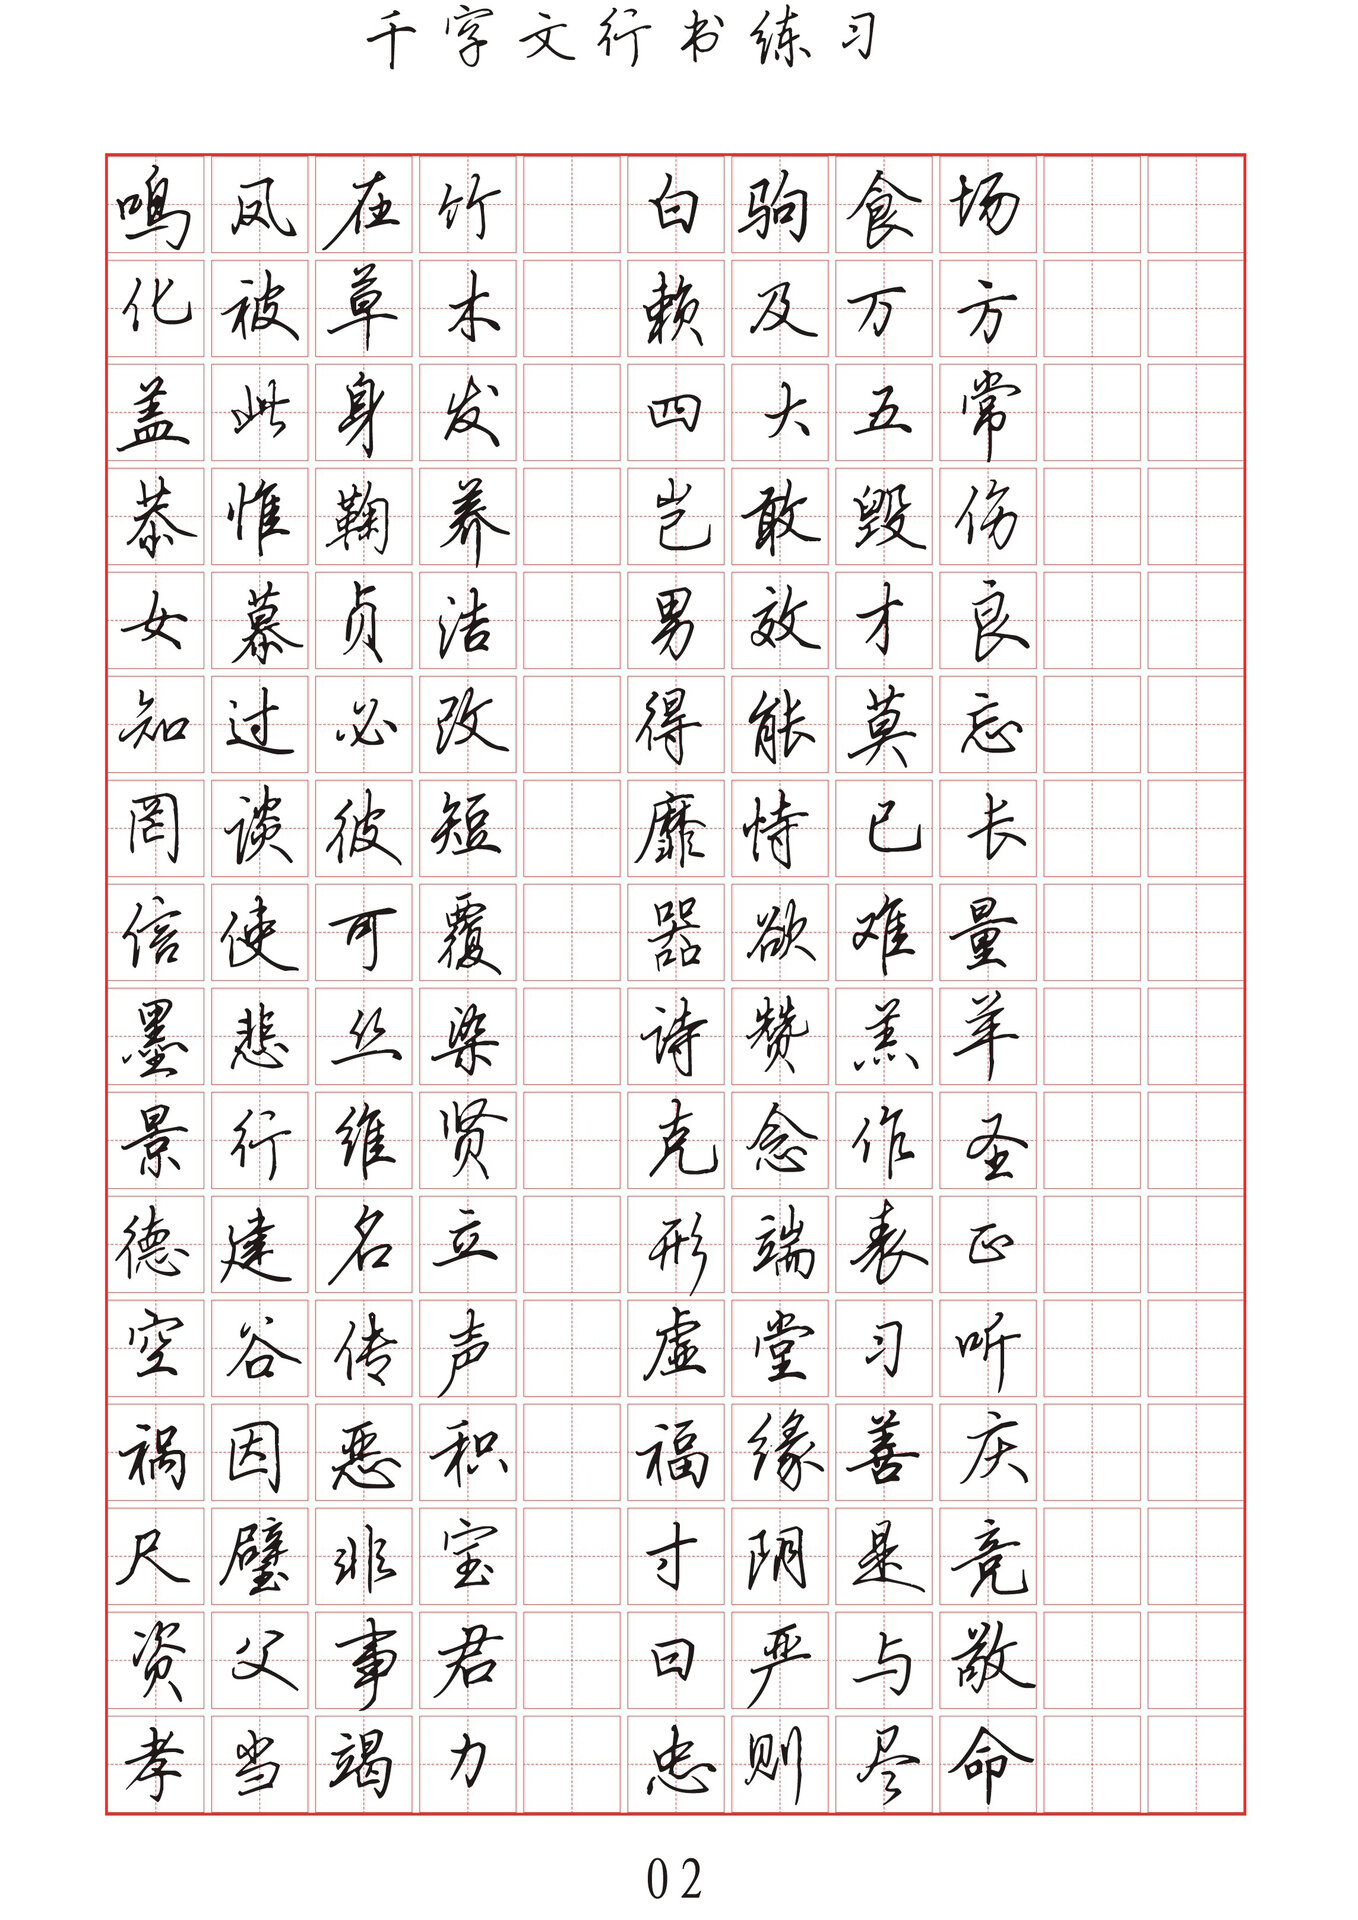 千字文行书练习
鸣凤在竹 白驹食场
化被草木 赖及万方
盖此身发 四大五常
恭惟鞠养 岂敢毁伤
女慕贞洁 男效才良
知过必改 得能莫忘
罔谈彼短 靡恃己长
信使可覆 器欲难量
墨悲丝染 诗赞羔羊
景行维贤 克念作圣
德建名立 形端表正
空谷传声 虚堂习听
祸因恶积 福缘善庆
尺璧非宝 寸阴是竞
资父事君 曰严与敬
孝当竭力 忠则尽命
02